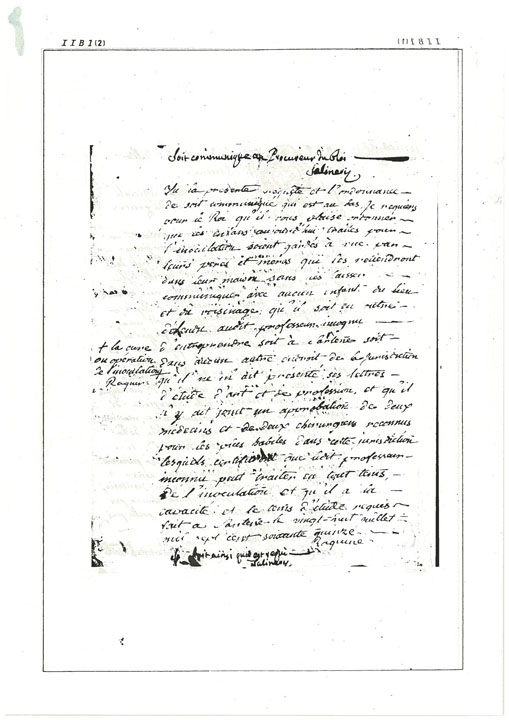 IIB1(2)
Soit communiqué au Procureur du Roi
Salineix
Vu la presente requiste et l'ordonnance
de soit communiqué qui est au bas, je requiers
pour le Roi qu'il vous plaise ordonner
que les enfans aujourd'hui traités pour
l'inoculation soient gardés à vue par
leurs peres et meres qui les retiendront
dans leur maison sans les laisser
communiquer avec aucun enfant du lieu
et du voisinage, qu'il soit en outre
défendu audit professeur inconnu
+ la cure
d'entreprendre soit à
soit
ou opération
dans aucune autre endroit de la jurisdiction
de l'inoculation
Raquine
qu'il ne m'ait presenté ses lettres
d'étude d'art et de profession, et qu'il
n'y ait joint un aprobation de deux
médecins et de deux chirurgiens reconnus
pour les plus habiles dans cette jurisdiction
lesquels certifieront que ledit professeur
inconnu peut traiter en tout tems,
de l'inoculation et qu'il a la
capacité et le tems d'étude requis
fait a le vingt-huit juillet
mil sept cent soixante quinze
Raquine
soit ainsi qu'il est requi
Salineix